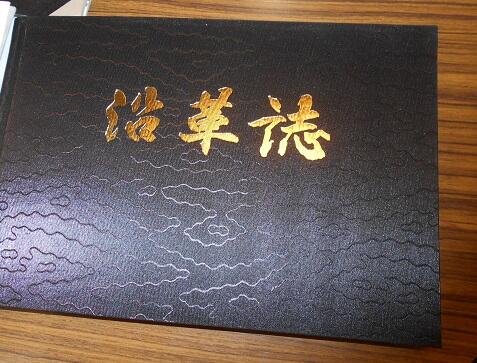 沿革誌